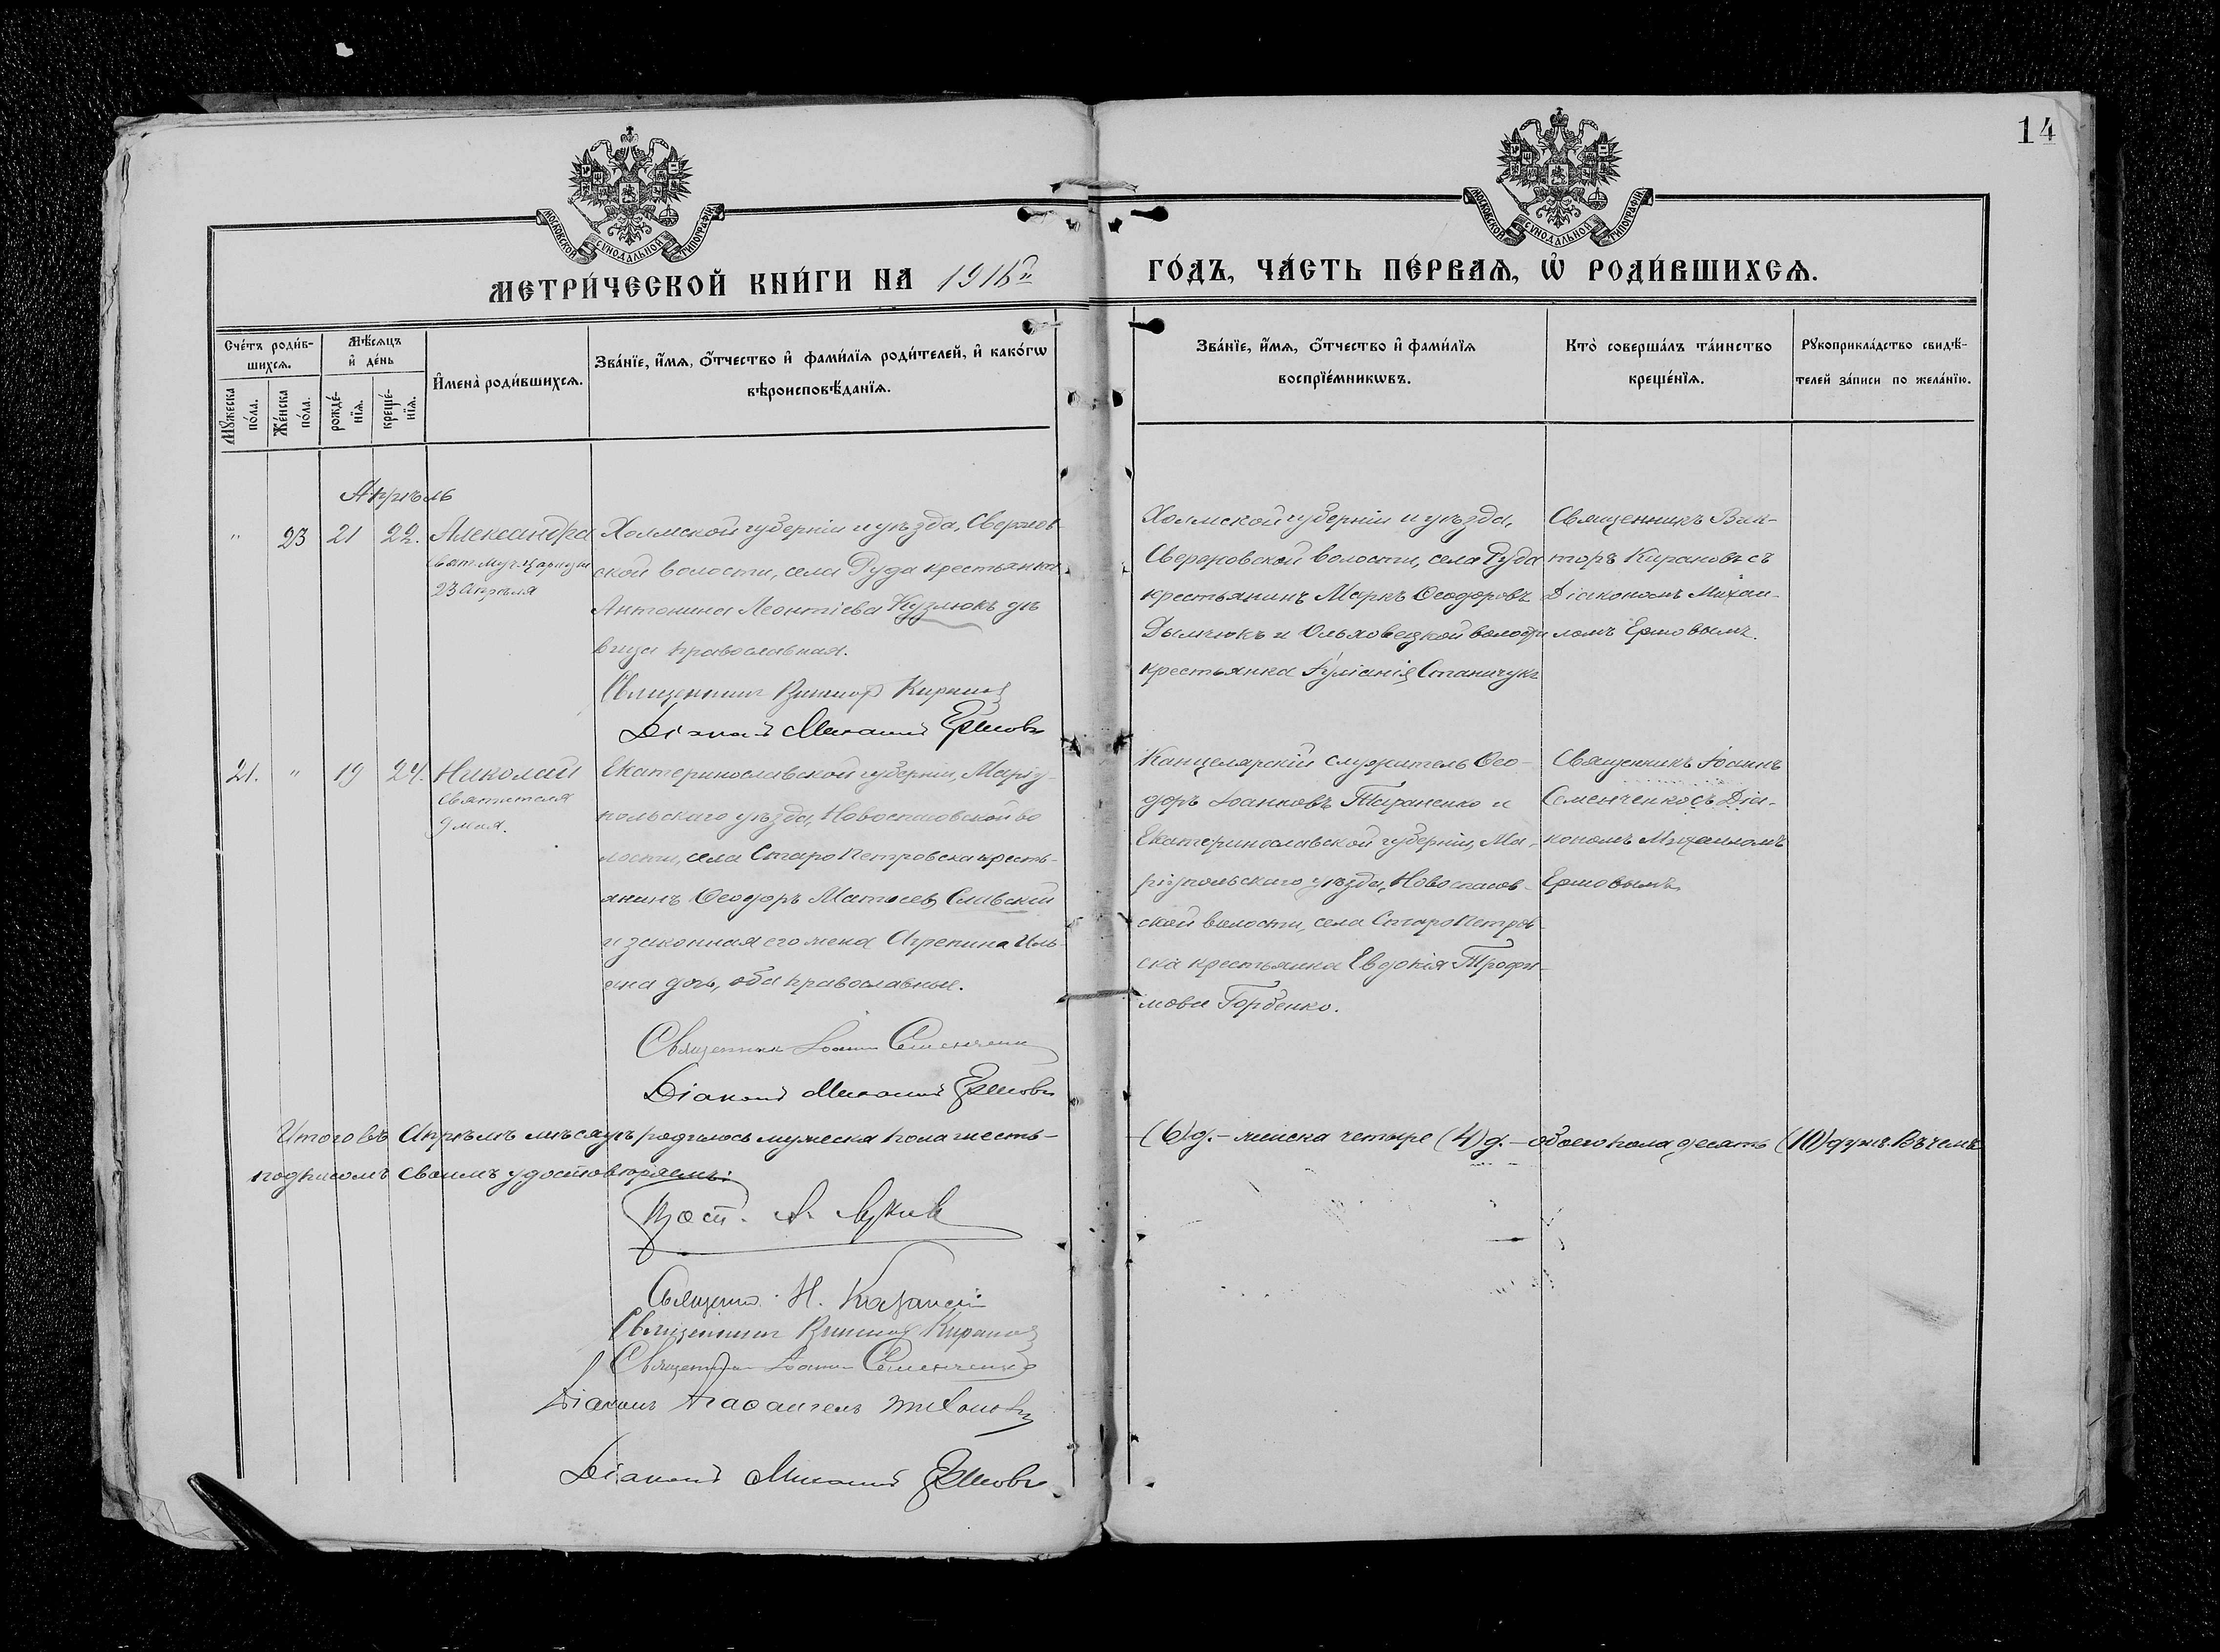 14
МОСКОВСКОЙ СѴНОДАЛЬНОЙ ТИПОГРАФІИ
МОСКОВСКОЙ СѴНОДАЛЬНОЙ ТИПОГРАФІИ
МЕТРИ́ЧЕСКОЙ КНИ́ГИ НА 1916й ГО́ДЪ, ЧА́СТЬ ПЕ́РВАЯ, Ѡ҆ РОДИ́ВШИХСЯ.
Сче́тъ роди́в-
шихся.
Мꙋ́жеска
по́ла.
Же́нска
по́ла.
Мѣ́сяцъ
и҆ де́нь
рожде́-
нїя.
креще́-
нїя.
И҆мена̀ роди́вшихся.
Зва́нїе, и҆́мя, ѻ҆́тчество и҆ фами́лїя роди́телей, и҆ како́гѡ
вѣроисповѣ́данїя.
Зва́нїе, и҆́мя, ѻ҆́тчество и҆ фами́лїя
воспрїе́мникѡвъ.
Кто̀ соверша́лъ та́инство
креще́нїя.
Рꙋкоприкла́дство свидѣ́-
телей за́писи по жела́нїю.
Апрѣль
" 23 21 22. Александра
Свят. муч. Царицы
23 апрѣля
Холмской губерніи и уѣзда, Свержов-
ской волости, села Руда крестьянка
Антонина Леонтіева Кузлюкъ дѣ
вица православная.
Священникъ Викторъ Кирановъ
Діаконъ Михаилъ Ермовъ
Холмской губерніи и уѣзда,
Свержовской волости, села Руда
крестьянинъ Маркъ Ѳеодоровъ
Дымчюкъ и Ольховецкой волости
крестьянка Іуліанія Станичукъ
Священникъ Вик-
торъ Кирановъ съ
Діакономъ Михаи-
ломъ Ермовымъ.
21. " 19 24. Николай
Святителя
9 мая.
Екатеринославской губерніи, Маріу-
польскаго уѣзда, Новоспасовской во
лости, села Старо Петровска кресть-
янинъ Ѳеодоръ Матѳеевъ Славскій
и законная его жена Агрепина Иль-
ина дочь, оба православные.
Священникъ Іоаннъ Семенченко
Діаконъ Михаилъ Ермовъ
Канцелярскій служитель Ѳео-
доръ Іоанновъ Тараненко и
Екатеринославской губерніи, Ма-
ріупольскаго уѣзда, Новоспасов-
ской волости, села Старо Петров-
ска крестьянка Евдокія Трофи-
мова Горбенко.
Священникъ Іоаннъ
Семенченко съ Діа-
кономъ Михаиломъ
Ермовымъ
Итого въ Апрѣлѣ мѣсяцѣ родилось мужеска пола шесть - (6) д. - женска четыре (4) д. - обоего пола десять (10) душъ. Въ чемъ
подписомъ своимъ удостовѣряемъ:
Прот.
Священ. Н. Казанскій
Священникъ Викторъ Кирановъ
Священникъ Іоаннъ Семенченко
Діаконъ Агаѳангелъ Тихоновъ
Діаконъ Михаилъ Ермовъ